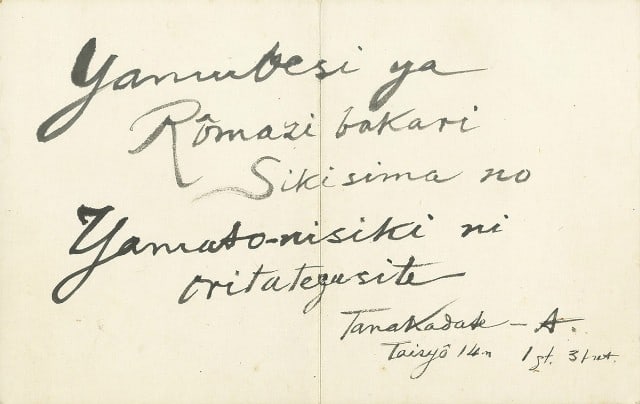 Yamubesi ya
Rômazi bakari
Sikisima no
Yamato-nisiki ni
oritategusite
Tanakadate - A.
Taisyô 14n 1gt. 31nt.